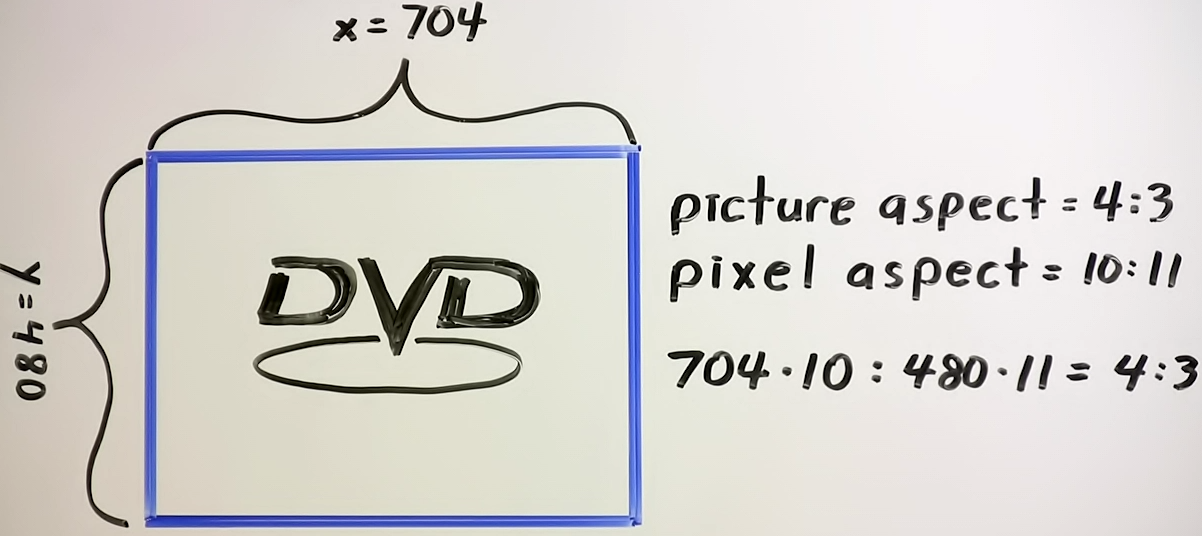 x = 704
Y = 480
DVD
picture aspect = 4:3
pixel aspect = 10:11
704 · 10 : 480 · 11 = 4:3